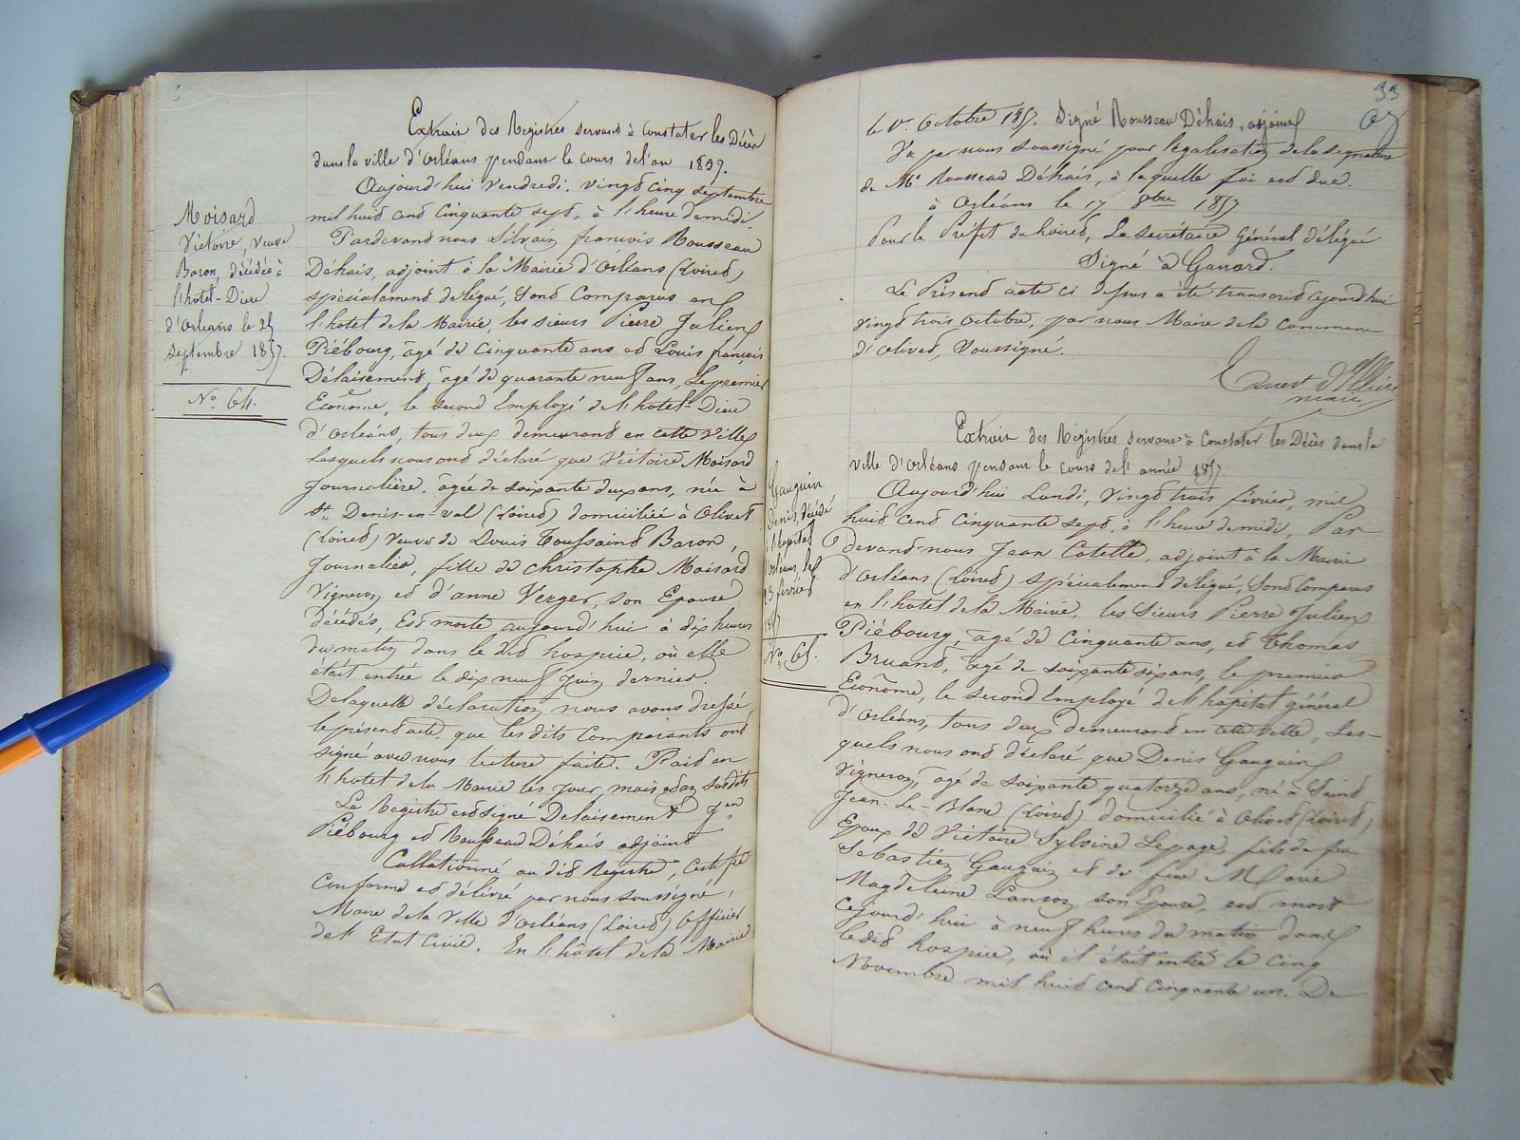 Extrait des Registres servant à Constater les Décès
dans la ville d'Orléans pendant le cours de l'an 1857.
Aujourd'hui Vendredi, vingt cinq septembre
mil huit cent cinquante sept, à l'heure de midi
Pardevant nous Silvain françois Rousseau
Déhais, adjoint à la Mairie d'Orléans (Loiret)
spécialement délégué, Sont Comparus en
l'hotel de la Mairie, les sieurs Pierre Julien
Piébourg, âgé de Cinquante ans et Louis françois
Délaisement, âgé de quarante neuf ans, Le premier
Econome, le second Employé de l'hotel-Dieu
d'Orléans, tous deux demeurant en cette Ville,
Lesquels nous ont déclaré que Victoire Moisard
Journalière, âgée de soixante deux ans, née à
St Denis-en-val (Loiret) domiciliée à Olivet
(Loiret) Veuve de Louis Toussaint Baron,
Journalier, fille de Christophe Moisard
Vigneron et d'anne Verger, son Epouse
Décédés, Est morte aujourd'hui à dix heures
du matin dans le dit hospice, où elle
était entrée le dix neuf Juin dernier.
De laquelle déclaration nous avons dressé
le présent acte que les dits Comparants ont
signé avec nous lecture faite. Fait en
l'hotel de la Mairie les jour, mois et an susdits
Le Registre est signé Délaisement Jen
Piébourg et Rousseau Déhais adjoint
Collationné au dit Registre, Certifié
Conforme et délivré par nous soussigné,
Maire de la Ville d'Orléans (Loiret) Officier
de l'Etat Civil. En l'hôtel de la Mairie
Moisard
Victoire, veuve
Baron, décédée à
l'hotel-Dieu
d'Orléans le 25
septembre 1857.
No. 64.
33
le 1er Octobre 1857. Signé Rousseau Déhais, adjoint
Vu par nous soussigné pour légalisation de la signature
de Mr Rousseau Déhais, à laquelle foi est due.
à Orléans le 17 8bre 1857
Pour le Préfet du Loiret, Le Secrétaire Général délégué
Signé
Le Présent acte ci dessus a été transcrit aujourd'hui
vingt trois Octobre, par nous Maire de la Commune
d'Olivet, Soussigné.
maire
Extrait des Registres servant à Constater les Décès dans la
ville d'Orléans pendant le cours de l'année 1857
Aujourd'hui Lundi, Vingt trois février, mil
huit cent Cinquante sept, à l'heure de midi, Par
devant nous Jean Cotelle, adjoint à la Mairie
d'Orléans (Loiret) spécialement délégué, Sont Comparus
en l'hotel de la Mairie, les Sieurs Pierre Julien
Piébourg, âgé de Cinquante ans, et Thomas
Bruant, âgé de soixante six ans, le premier
Econome, le second Employé de l'hôpital général
d'Orléans, tous deux demeurant en cette Ville, Les-
quels nous ont déclaré que Denis Gauguin
Vigneron, âgé de soixante quatorze ans, né à Saint
Jean-Le-Blanc (Loiret) domicilié à Olivet (Loiret)
Epoux de Victoire Sylvine Lepage, fils de feu
Sebastien Gauguin et de feue Marie
Magdeleine Lanson son Epouse, est mort
cejourd'hui à neuf heures du matin dans
le dit hospice, où il était entré le cinq
Novembre mil huit cent cinquante un. De
Gauguin
Denis, décédé
l'hopital
Orléans, le
23 février
No. 65.